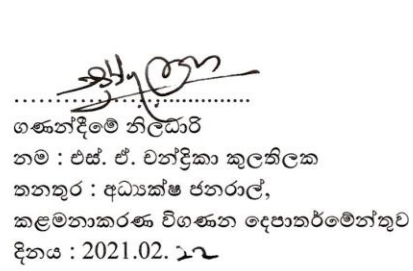 ගණන්දීමේ නිලධාරි
නම : එස්. ඒ. චන්ද්‍රිකා කුලතිලක
තනතුර : අධ්‍යක්ෂ ජනරාල්,
කළමනාකරණ විගණන දෙපාර්තමේන්තුව
දිනය : 2021.02. 22